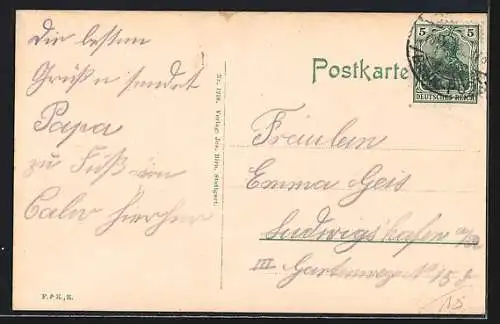 Die besten
Grüße sendet
Papa
zu Fuß von
Calw hierher
Nr. 1218. Verlag: Jos. Stuttgart.
F. & K., K.
Postkarte
5 5
DEUTSCHES REICH
Fräulein
Emma Geis
Ludwigshafen a/Rh
III Gartenweg No 15
15